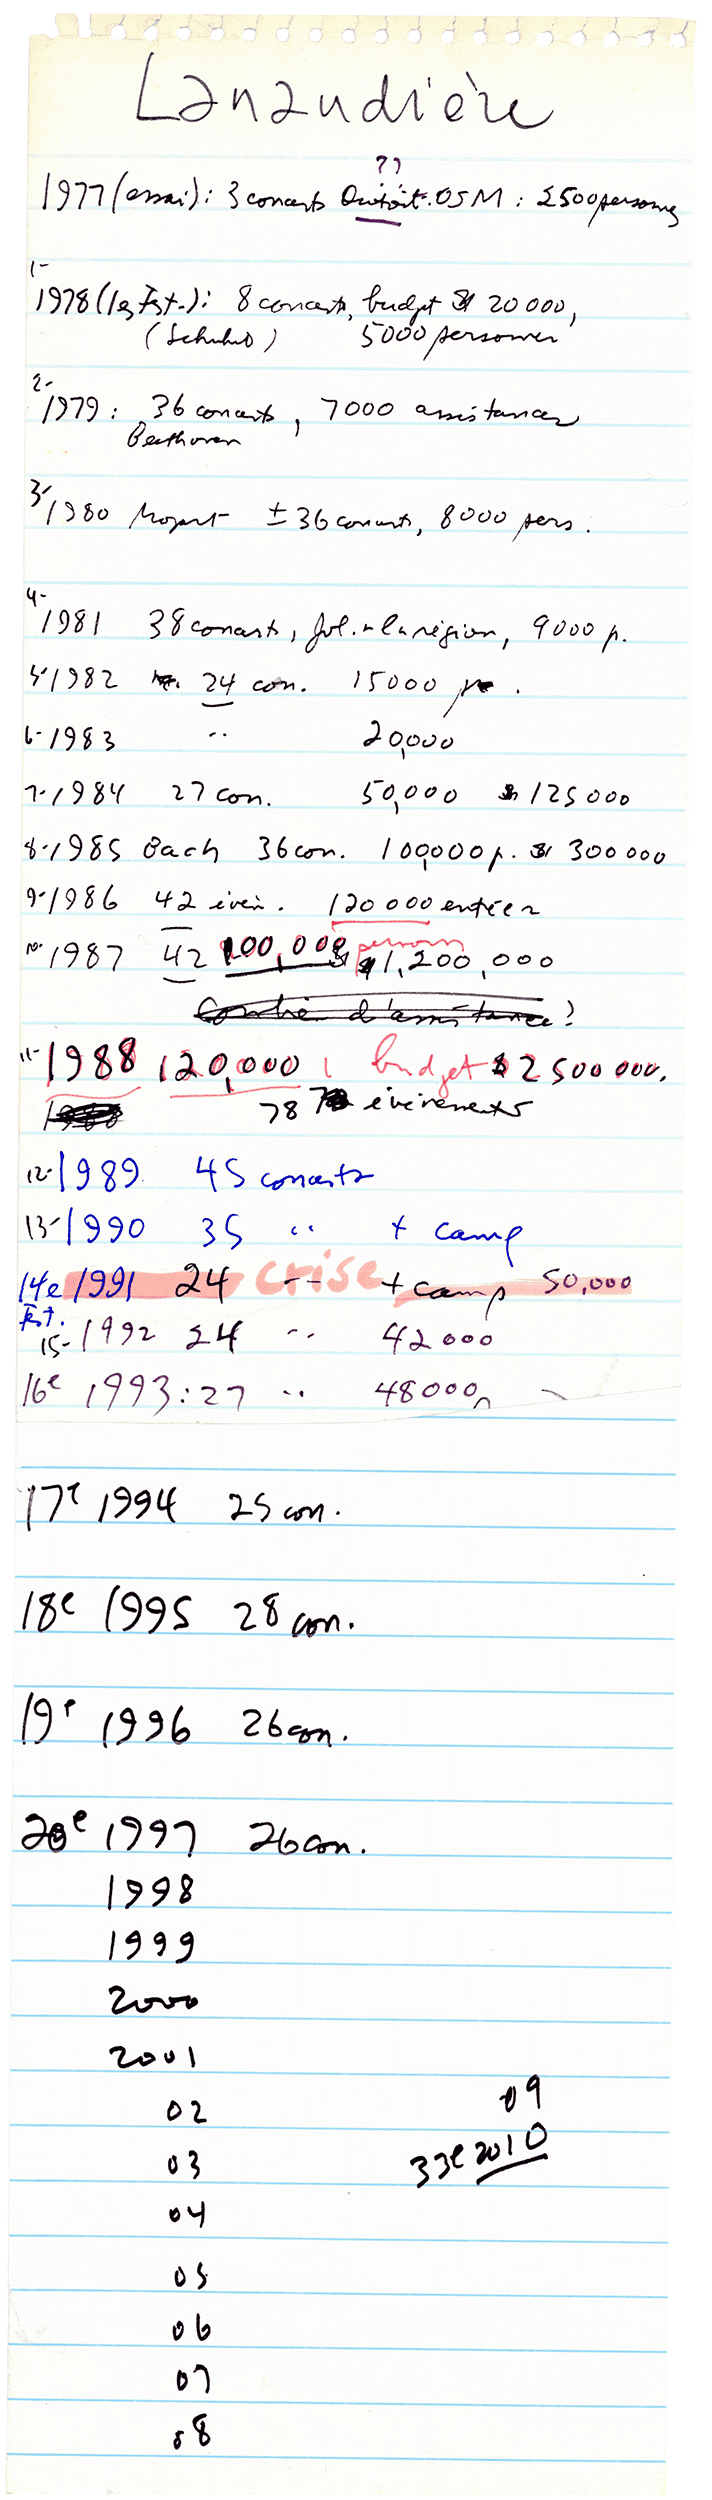 Lanaudière
??
1977 (essai) : 3 concerts Dutoit. OSM : 2500 personnes
1-
1978 (1er Fest.) : 8 concerts, budget $ 20 000,
(Schubert) 5000 personnes
2-
1979 : 36 concerts, 7000 assistances
Beethoven
3-
1980 Mozart ± 36 concerts, 8000 pers.
4-
1981 38 concerts, la région, 9000 p.
5- 1982 24 con. 15000 p.
6- 1983 " 20,000
7- 1984 27 con. 50,000 $ 125 000
8- 1985 Bach 36 con. 100,000 p. $ 300 000
9- 1986 42 évén. 120 000 entrées
10- 1987 42 100,000 personnes $ 1,200,000
Combien d'assistance ?
11- 1988 120,000 budget $ 2 500 000.
1988 78 événements
12- 1989 45 concerts
13- 1990 35 " + camp
14e 1991 24 crise " + camp 50,000
Fest.
15- 1992 24 " 42 000
16e 1993 : 27 " 48 000
17e 1994 25 con.
18e 1995 28 con.
19e 1996 26 con.
20e 1997 26 con.
1998
1999
2000
2001
02 09
03 33e 2010
04
05
06
07
08